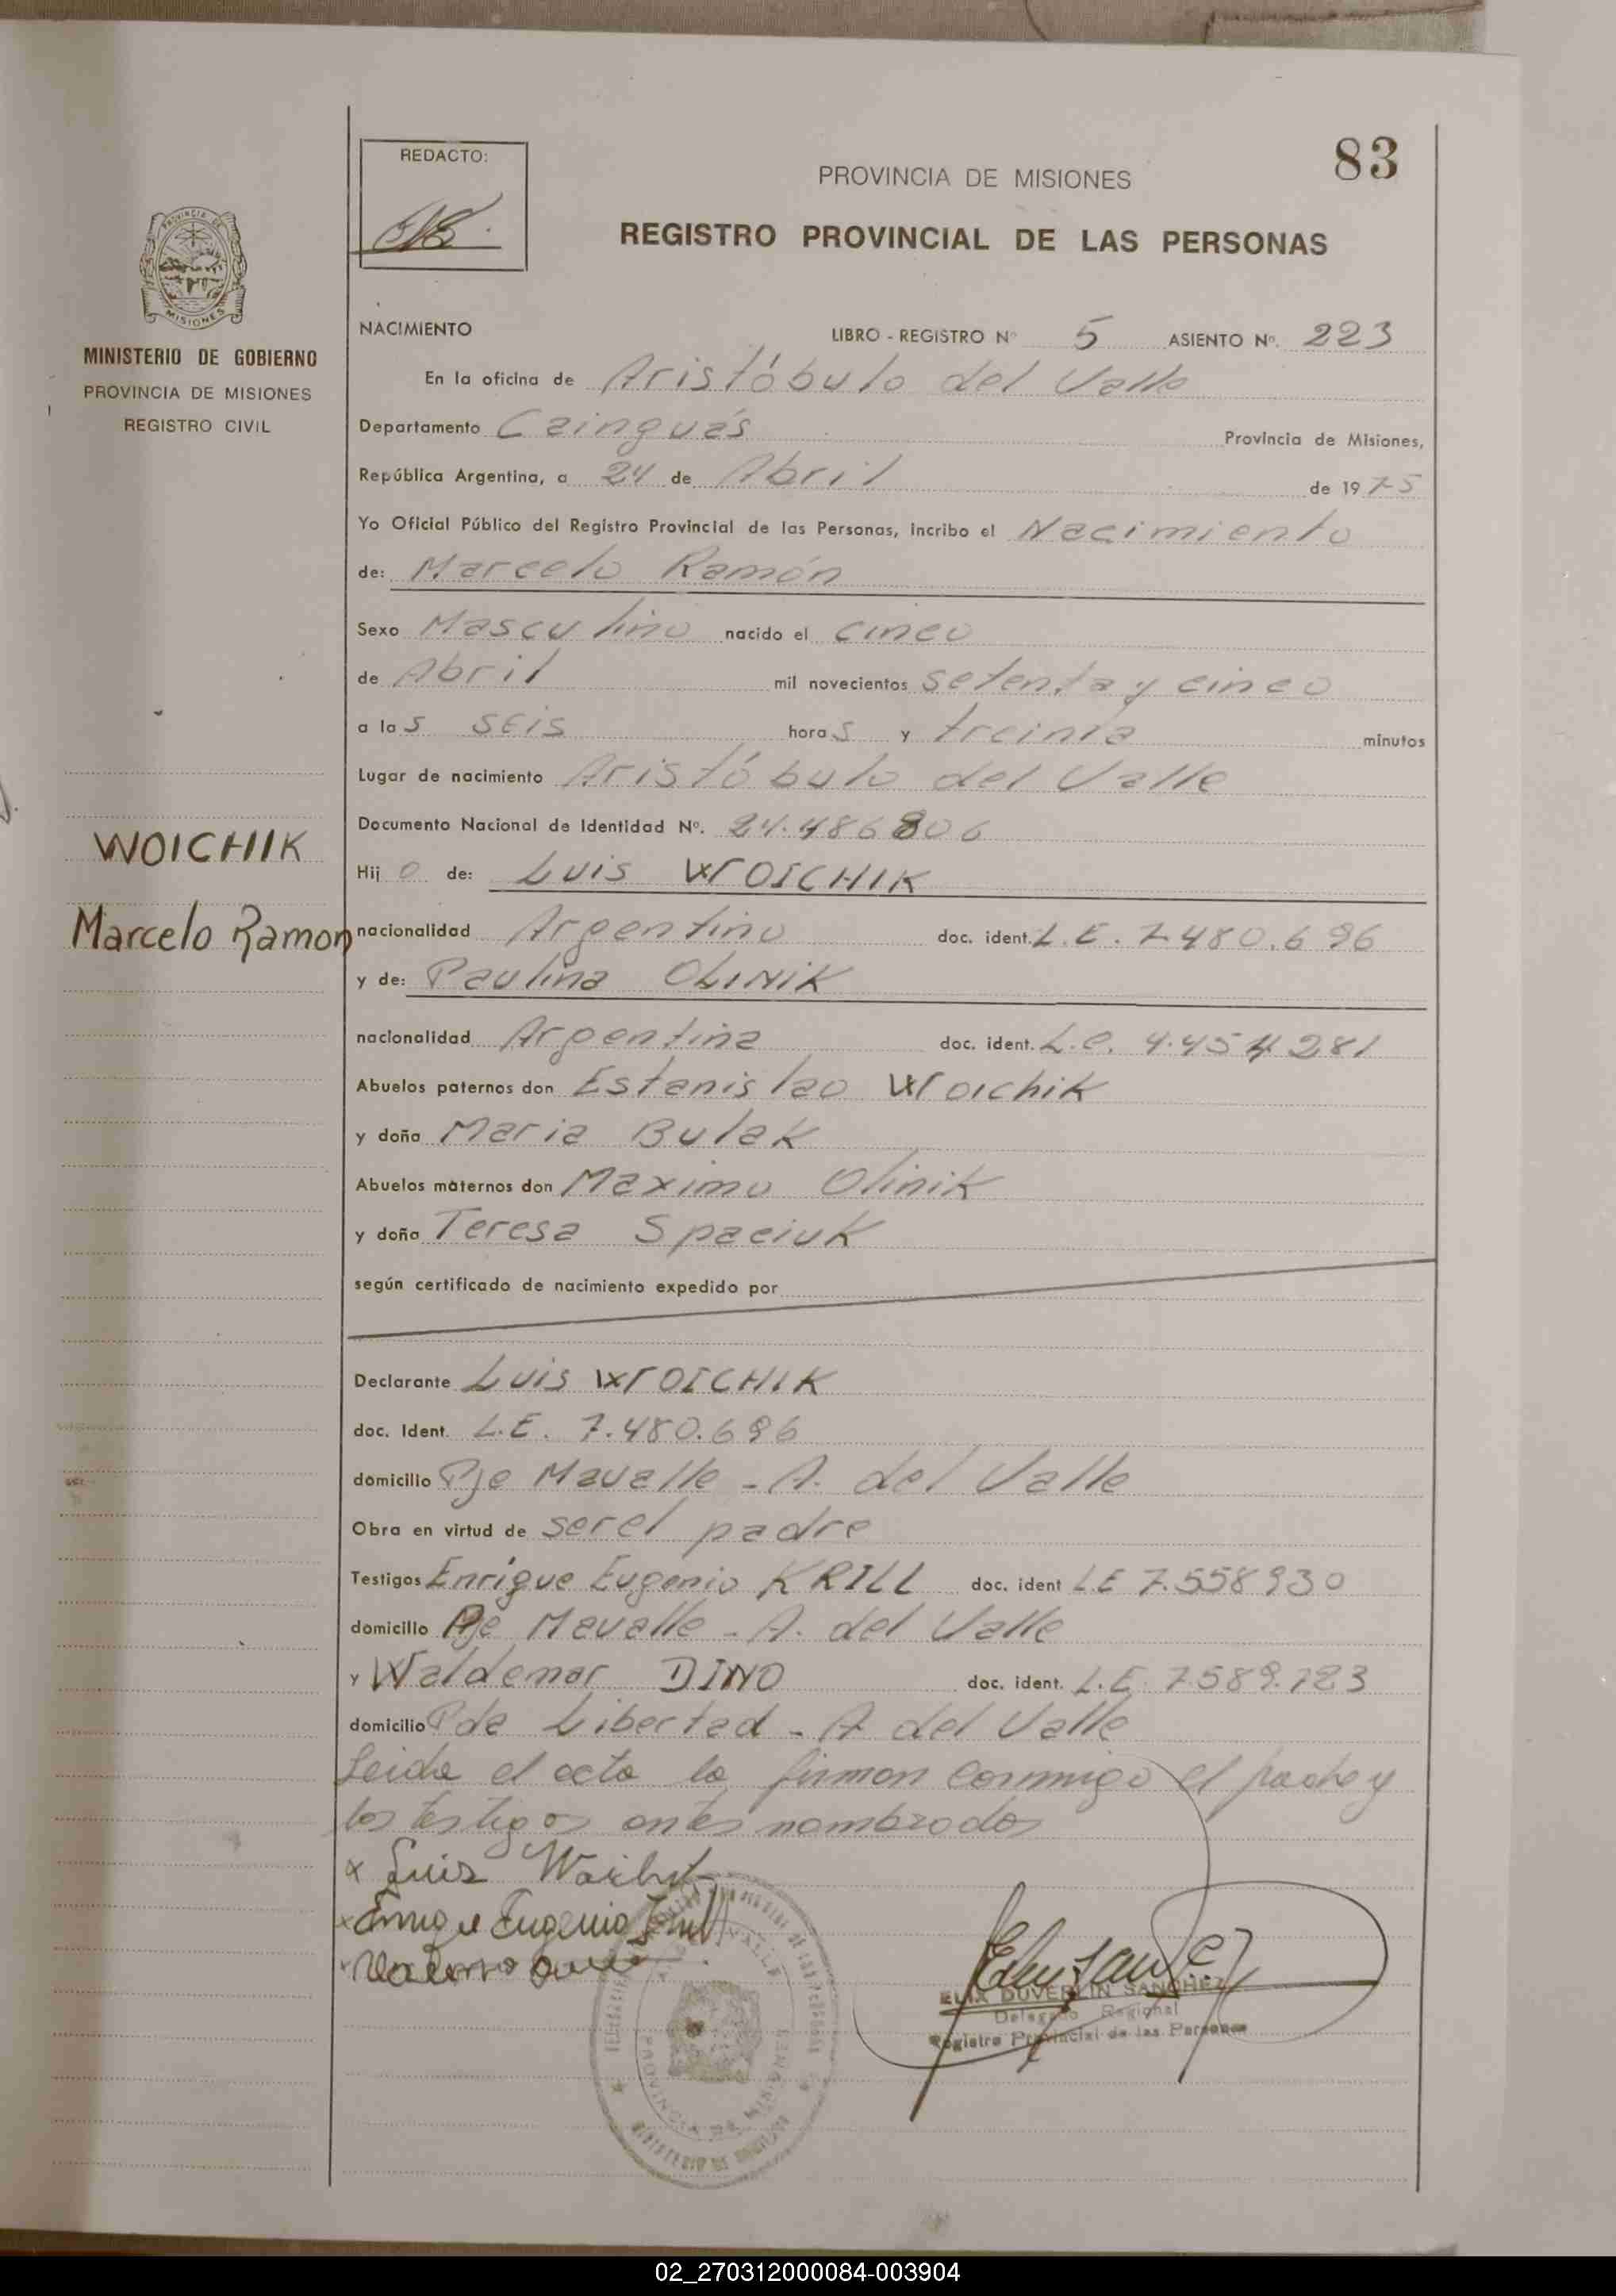 83
REDACTO:
PROVINCIA DE MISIONES
REGISTRO PROVINCIAL DE LAS PERSONAS
MISIONES
MINISTERIO DE GOBIERNO
PROVINCIA DE MISIONES
REGISTRO CIVIL
WOICHIK
Marcelo Ramon
NACIMIENTO LIBRO - REGISTRO Nº 5 ASIENTO Nº. 223
En la oficina de Aristóbulo del Valle
Departamento Cainguás Provincia de Misiones,
República Argentina, a 24 de Abril de 1975
Yo Oficial Público del Registro Provincial de las Personas, incribo el Nacimiento
de: Marcelo Ramón
Sexo Masculino nacido el cinco
de Abril mil novecientos setenta y cinco
a las seis horas y treinta minutos
Lugar de nacimiento Aristóbulo del Valle
Documento Nacional de Identidad Nº. 24.486806
Hijo de: Luis WOICHIK
nacionalidad Argentino doc. ident. L.E. 7.480.696
y de: Paulina OLINIK
nacionalidad Argentina doc. ident. L.C. 4.454281
Abuelos paternos don Estanislao Woichik
y doña Maria Bulak
Abuelos maternos don Maximo Olinik
y doña Teresa Spaciuk
según certificado de nacimiento expedido por
Declarante Luis WOICHIK
doc. Ident. L.E. 7.480.696
domicilio Pje Mavalle - A. del Valle
Obra en virtud de ser el padre
Testigos Enrique Eugenio KRILL doc. ident L.E 7.558930
domicilio Pje Mavalle - A. del Valle
y Waldemar DINO doc. ident. L.E. 7.589.723
domicilio Pda Libertad - A del Valle
Leida el acta la firman conmigo el padre y
los testigos antes nombrados
x Luis Woichik
x Enrique Eugenio Krill
ELIX DUVERLIN SANCHEZ
Delegado Regional
Registro Provincial de las Personas
PROVINCIA DE MISIONES
MINISTERIO DE GOBIERNO
02_270312000084-003904